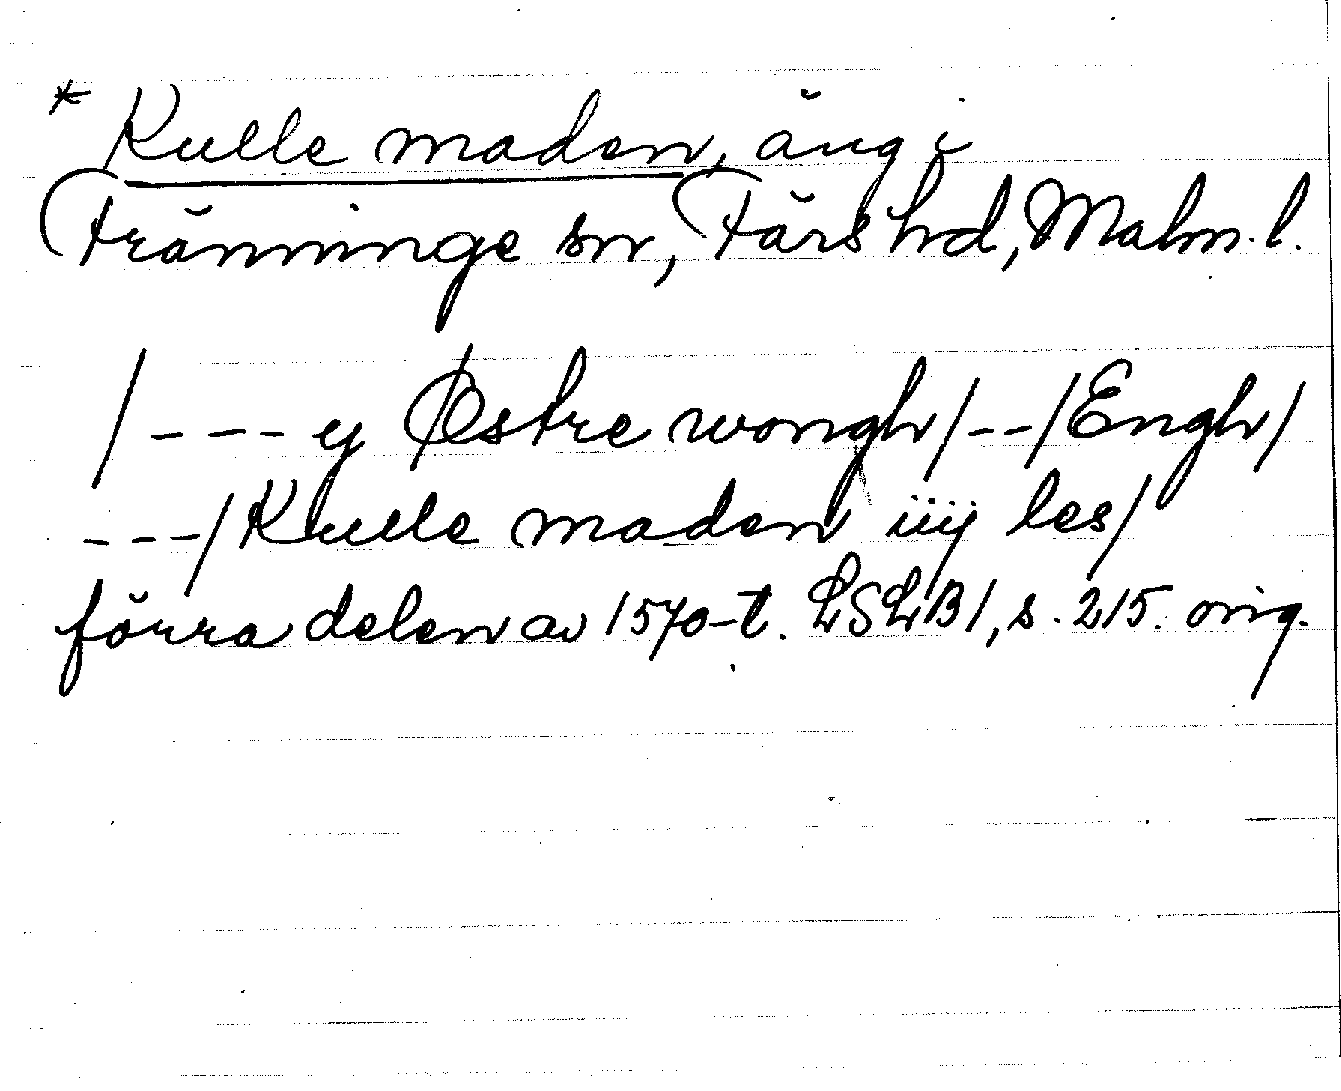 * Kulle maden, äng i
Fränninge sn, Färs hd, Malm. l.
/--- y Østre wongh/--/Engh/
---/Kulle maden iiij les/
förra delen av 1570-t. LSLB1, s. 215. orig.